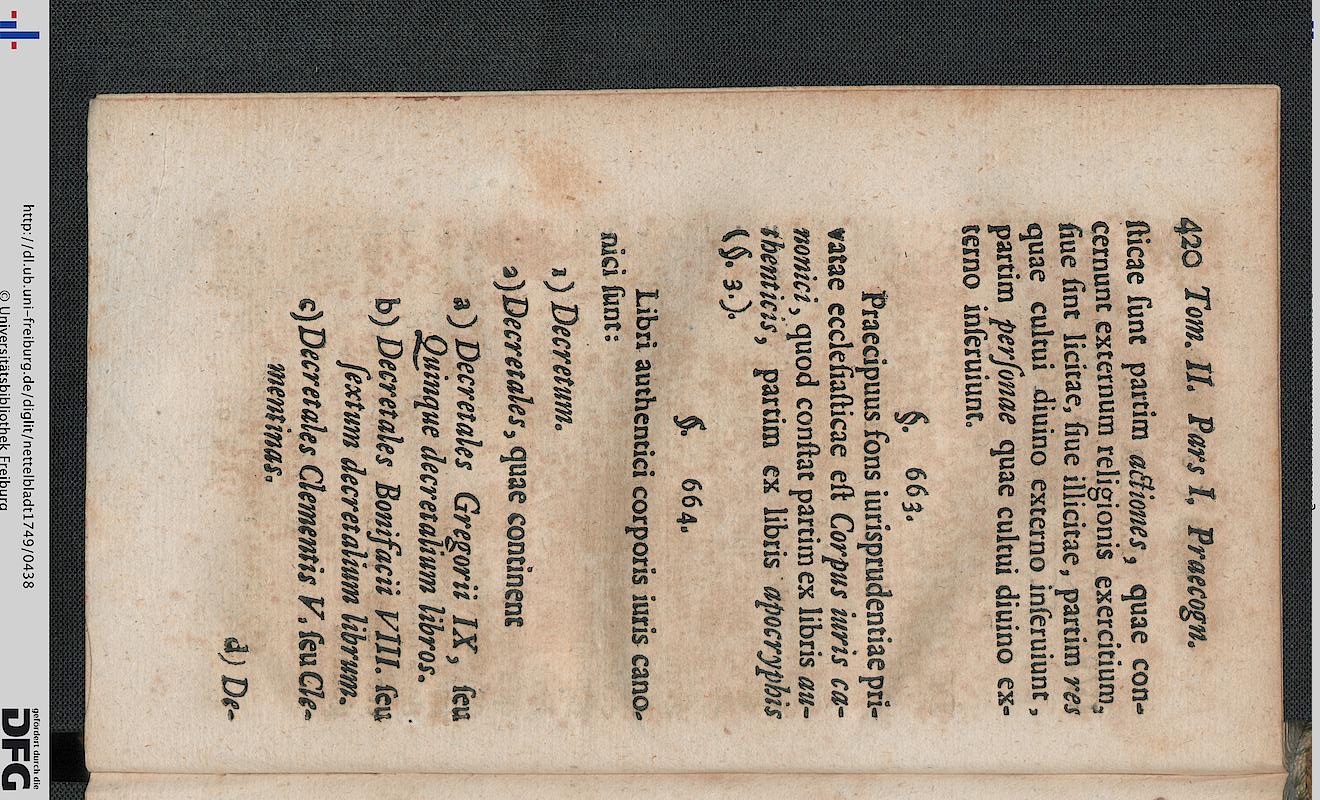 420 Tom. II. Pars I. Praecogn.
ſticae ſunt partim actiones, quae con-
cernunt externum religionis exercitium,
ſiue ſint licitae, ſiue illicitae, partim res
quae cultui diuino externo inſeruiunt,
partim perſonae quae cultui diuino ex-
terno inſeruiunt.
§. 663.
Praecipuus fons iurisprudentiae pri-
vatae eccleſiaſticae eſt Corpus iuris ca-
nonici, quod conſtat partim ex libris au-
thenticis, partim ex libris apocryphis
(§. 3.).
§. 664.
Libri authentici corporis iuris cano-
nici ſunt:
1) Decretum.
2) Decretales, quae continent
a) Decretales Gregorii IX, ſeu
Quinque decretalium libros.
b) Decretales Bonifacii VIII. ſeu
ſextum decretalium librum.
c) Decretales Clementis V. ſeu Cle-
mentinas.
d) De-
http://dl.ub.uni-freiburg.de/diglit/nettelbladt1749/0438
© Universitätsbibliothek Freiburg
gefördert durch die
DFG